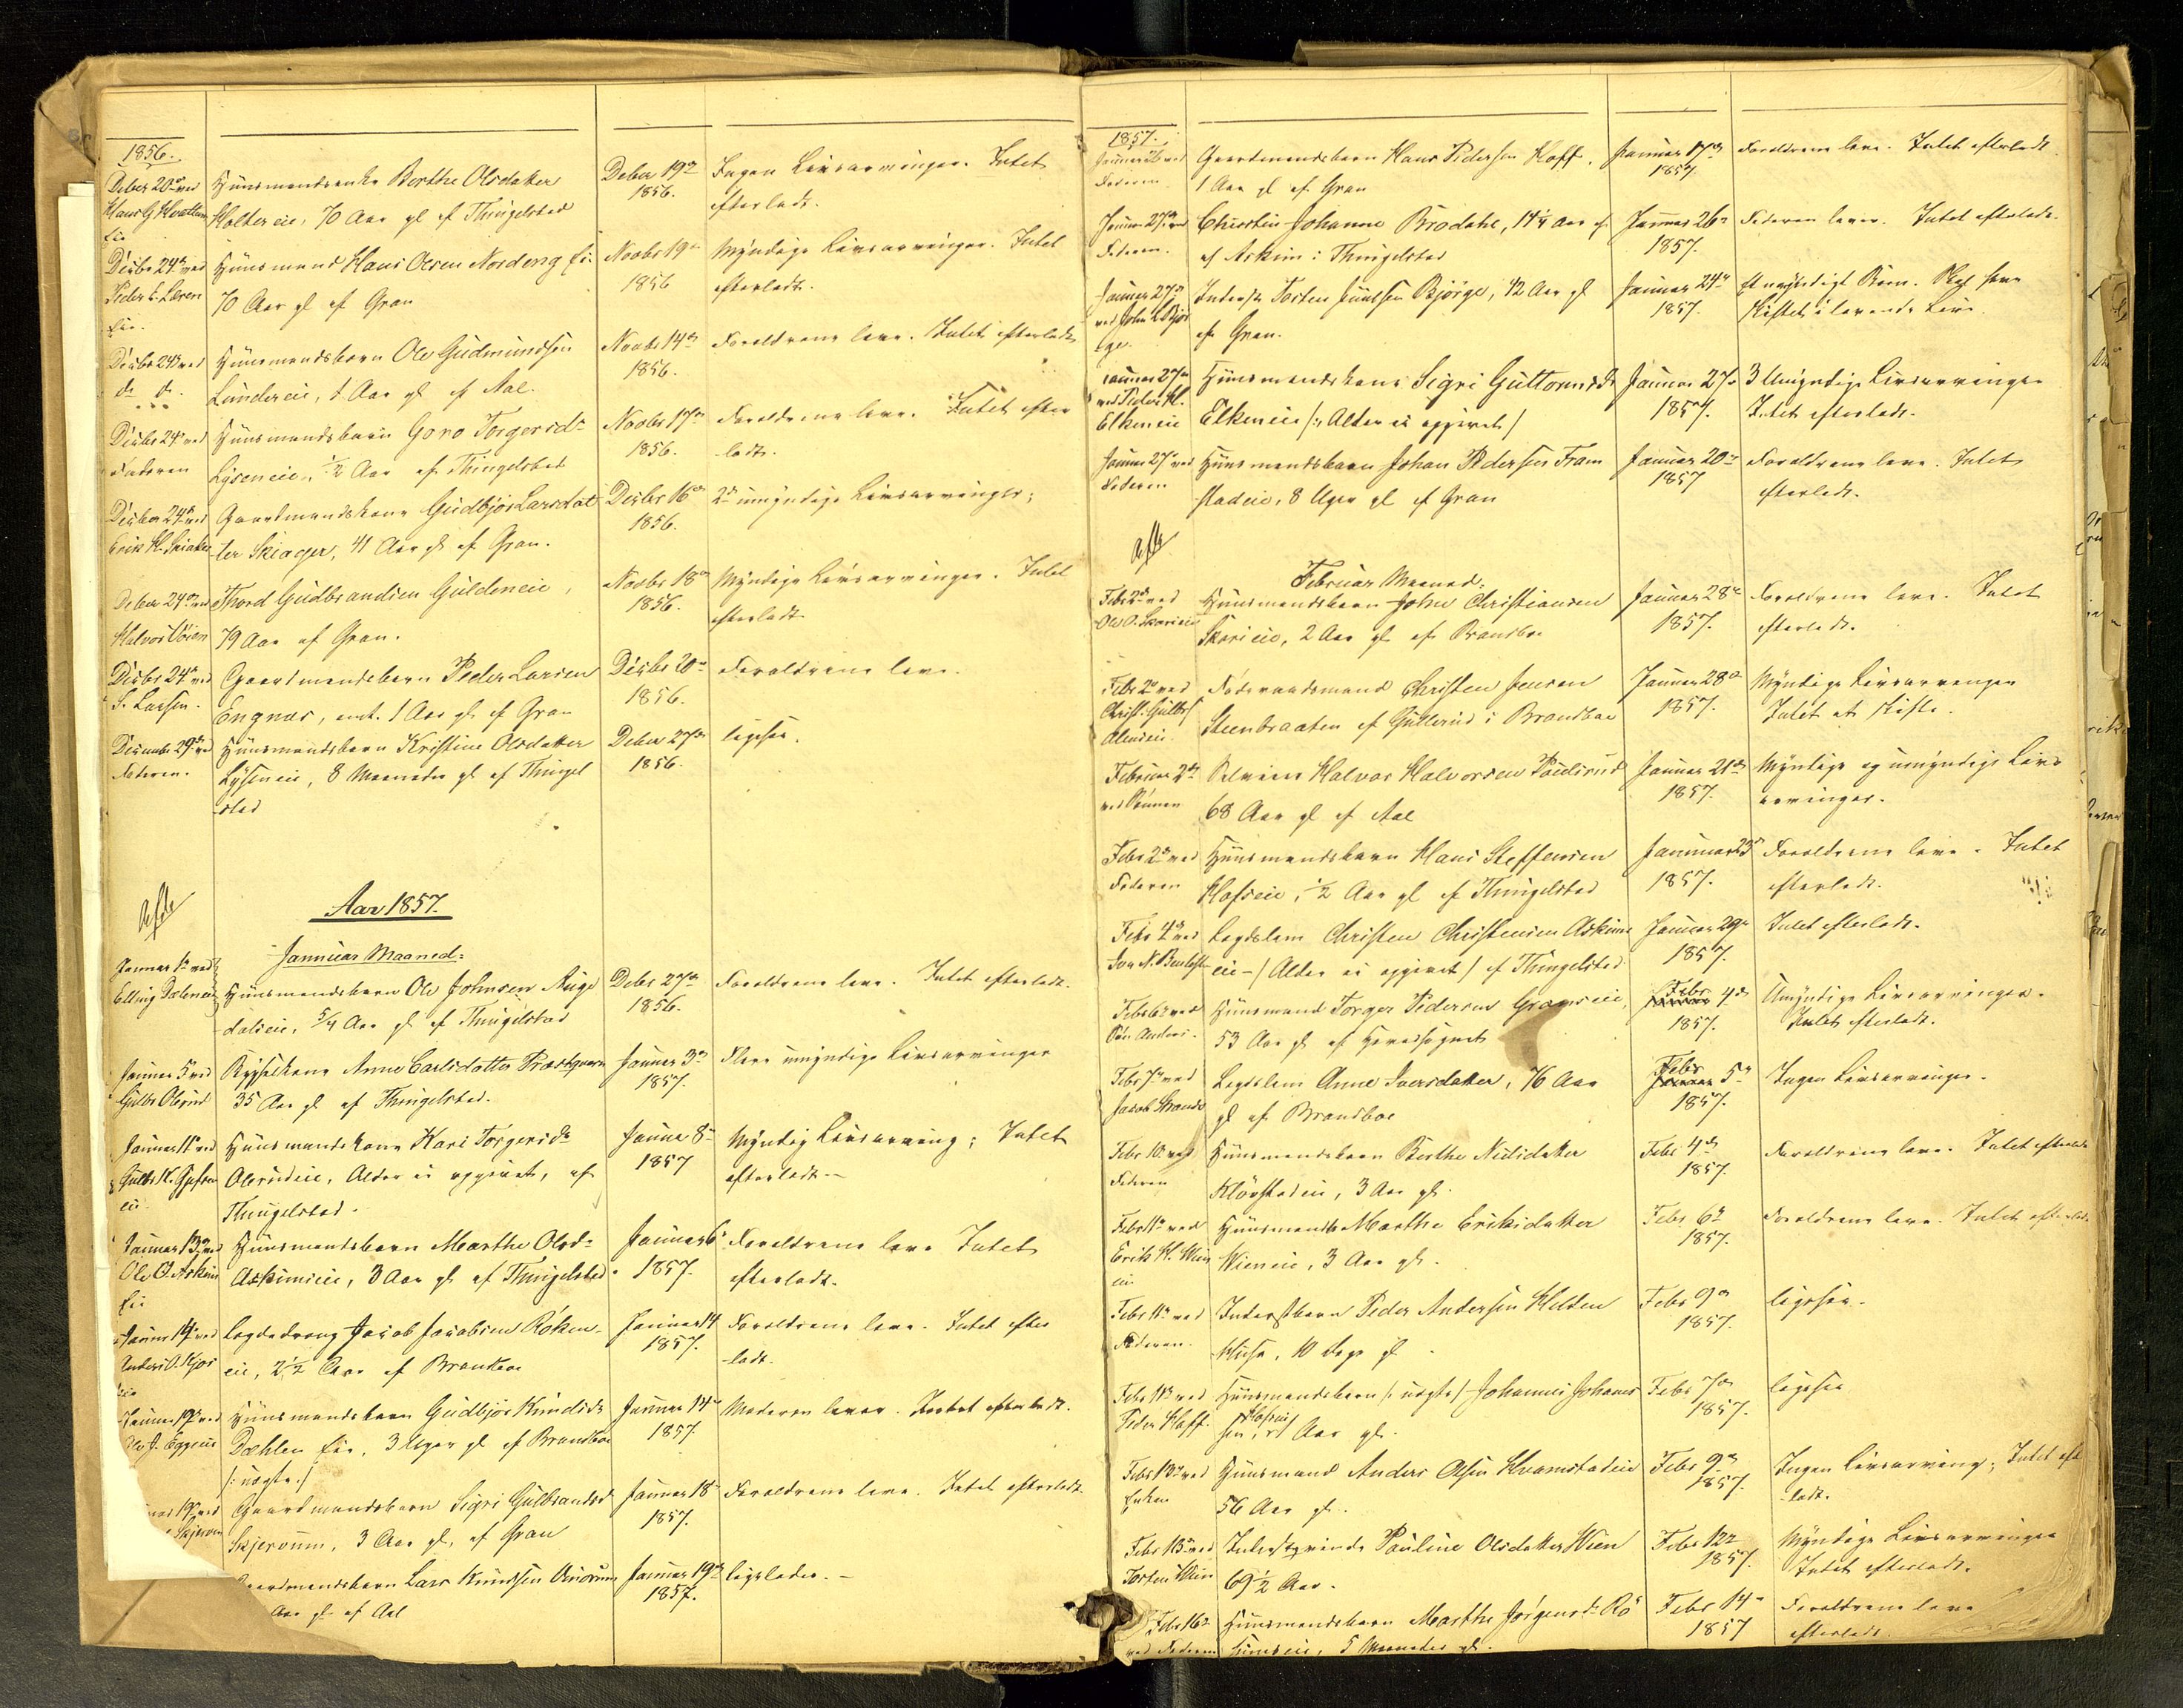 1856.
Deber 20de ved Huusmandsenke Berthe Olsdatter Deber 19de Ingen Livsarvinger. Intet
Hans G Holter Holtereie, 70 Aar gl af Thingelstad 1856. efterladt.
eie
Decbr 24de ved Huusmand Hans Olsen Nordeng eie Novbr 19de Myndige Livsarvinger. Intet
Peder Larsen 70 Aar gl af Gran 1856 efterladt.
eie.
Decbr 24de ved Huusmandsbarn Ole Gudmundsen Novbr 14de Forældrene leve. Intet efterladt
do do. Lundereie, 1 Aar gl af Aal. 1856.
Decbr 24de ved Huusmandsbarn Goro Torgersdr Novbr 17de Forældrene leve. Intet efter
Faderen Lyseneie, 1/2 Aar af Thingelstad 1856. ladt.
Decber 24de ved Gaardmandskone Gudbjør Larsdat Decbr 16de 2de umyndige Livsarvinger;
Erik H. Skiager ter Skiager, 41 Aar gl af Gran. 1856.
Deber 24de ved Thord Gudbrandsen Guldeneie, Novbr 18de Myndige Livsarvinger. Intet
Halvor Vøien 79 Aar af Gran. 1856. efterladt
Decbr 24de ved Gaardmandsbarn Peder Larsen Decbr 20de Forældrene leve.
S. Larsen. Engnæs, 1 Aar gl af Gran 1856.
December 29de ved Huusmandsbarn Kristine Olsdatter Deber 27de ligesaa.
Faderen. Lyseneie, 8 Maaneder gl af Thingel 1856.
stad
Aar 1857.
Januar Maaned:
Januar 1ste ved
Elling Dæleneie Huusmandsbarn Ole Johnsen Ruge Debr 27de Forældrene leve. Intet efterladt.
dalseie, 5/4 Aar gl af Thingelstad 1856.
Januar 5te ved Anne Carlsdatter Januar 3de Flere umyndige Livsarvinger
Gulbr Olerud 35 Aar gl af Thingelstad. 1857.
Januar 11te ved Huusmandskone Kari Torgersdr Januar 8de Myndig Livsarving; Intet
Gulbr K. Olerudeie, Alder ei opgivet, af 1857 efterladt.
eie. Thingelstad.
Januar 13de ved Huusmandsbarn Marthe Olsdr Januar 6te Forældrene leve Intet
Ole O. Askim Askimeie, 3 Aar gl af Thingelstad. 1857. efterladt.
eie
Januar 14de ved Lægdedreng Jacob Jacobsen Røken- Januar 14 Forældrene leve. Intet efter
Anders O. Kjos eie, 2 1/2 Aar af Brandboe 1857. ladt.
eie
Januar 19de ved Huusmandsbarn Gudbjør Knudsdr Januar 14de Moderen lever. Intet efterladt.
Ole J. Eggeeie Dæhlen eie, 3 Uger gl af Brandboe 1857.
/: uægte./
19de ved Gaardmandsbarn Sigri Gulbrandsd Januar 18de Forældrene leve. Intet efterladt
Skjervum, 3 Aar gl, af Gran 1857.
Gaardmandsbarn Lars Knudsen Januar 19de ligeledes.
Aar gl af Aal 1857.
1857.
Januar 26 ved Gaardmandsbarn Hans Pedersen Hoff, Januar 17de Forældrene leve. Intet efterladt.
Faderen. 1 Aar gl af Gran 1857.
Januar 27de ved Christine Johanne Brodahl, 14 1/4 Aar gl Januar 26de Faderen lever. Intet efterladt.
Faderen. af Askim i Thingelstad 1857.
Januar 27de Inderst Torsten Juulsen Bjørge, 42 Aar gl Januar 24de Et umyndigt Barn.
ved John L Bjør af Gran. 1857. Skiftet i levende Live.
ge.
Januar 27de Huusmandskone Sigri Guttormsdr Januar 27de 3 Umyndige Livsarvinger
ved Peder H. Elkeneie /: Alder ei opgivet / 1857. Intet efterladt.
Elkeneie
Januar 27de ved Huusmandsbarn Johan Pedersen Fram Januar 20de Forældrene leve. Intet
Faderen stadeie, 8 Uger gl af Gran 1857 efterladt.
Februar Maaned.
Febr 2de ved Huusmandsbarn John Christiansen Januar 28de Forældrene leve. Intet
Ole O. Skarieie Skarieie, 2 Aar gl af Brandboe 1857. efterladt.
Febr 2de ved Føderaadsmand Christen Jensen Januar 28de Myndige Livsarvinger
Christ. Gulbr Steenbraaten af Gullerud i Brandboe 1857. Intet at skifte.
Alm eie.
Februar 2de Halvor Halvorsen Paulsrud Januar 21de Myndige og umyndige Livs
ved Sønnen 68 Aar gl af Aal 1857. arvinger.
Febr 2de ved Huusmandsbarn Hans Steffensen Januar 25 Forældrene leve. Intet
Faderen Hofseie, 1/2 Aar gl af Thingelstad 1857. efterladt.
Febr 4de ved Lægdslem Christen Christensen Askim Januar 29de Intet efterladt.
eie /Alder ei opgivet/ af Thingelstad 1857.
Febr 6te ved Huusmand Torger Pedersen Granseie, Febr 4de Umyndige Livsarvinger.
Søn Anders. 53 Aar gl af Hovedsognet 1857. Intet efterladt.
Febr 7de ved Lægdslem Anne Iversdatter, 76 Aar Febr 5te Ingen Livsarvinger.
Jacob gl af Brandboe 1857.
Febr 10 ved Huusmandsbarn Berthe Nilsdatter Febr 4de Forældrene leve. Intet efterladt
Faderen Kløvstadeie, 3 Aar gl. 1857.
Febr 11te ved Huusmandsb Marthe Eriksdatter Febr 6te Forældrene leve. Intet efterladt
Erik H. Wien Wieneie, 3 Aar gl. 1857.
eie
Febr 11te ved Inderstbarn Peder Andersen Helden Febr 9de ligesaa.
Faderen. 10 Dage gl. 1857.
Febr 11te ved Huusmandsbarn /: uægte/ Johannes Johanne Febr 7de ligesaa
Peder Hoff. sen, Hofseie Aar gl. 1857.
Febr 13de ved Huusmand Anders Olsen Framstadeie Febr 9de Ingen Livsarving; Intet efter
Enken 56 Aar gl. 1857. ladt.
Febr 15de ved Inderstqvinde Pauline Olsdatter Wien Febr 12te Myndige Livsarvinger
Torsten Wien 69 1/2 Aar. 1857. Intet efterladt.
Febr 16de Huusmandsbarn Marthe Jørgensdr Rø Febr 14de Forældrene leve
ved Faderen sumseie, 5 Maaneder gl. 1857 efterladt.